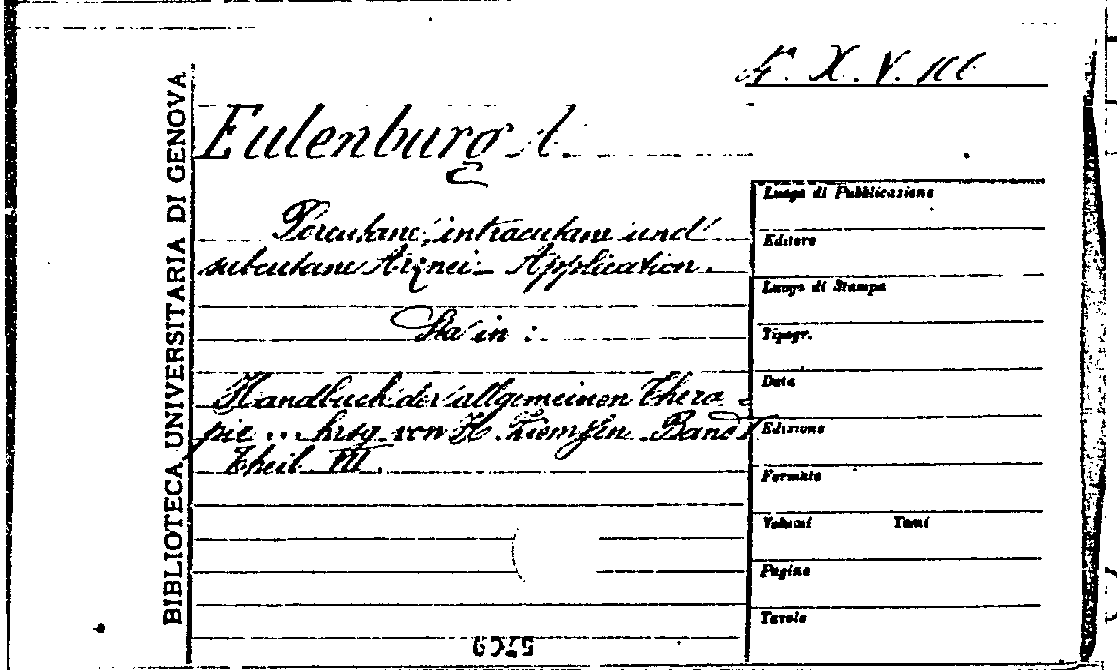 4ª. X. V. 100
BIBLIOTECA UNIVERSITARIA DI GENOVA
Eulenburg A.
Percutane, intracutane und
subcutane Arznei-Application.
Sta in:
Handbuch der allgemeinen Thera-
pie ... hrsg. von H. Ziemssen. Band I
Theil III.
Luogo di Pubblicazione
Editore
Luogo di Stampa
Tipogr.
Data
Edizione
Formato
Volumi Tomi
Pagine
Tavole